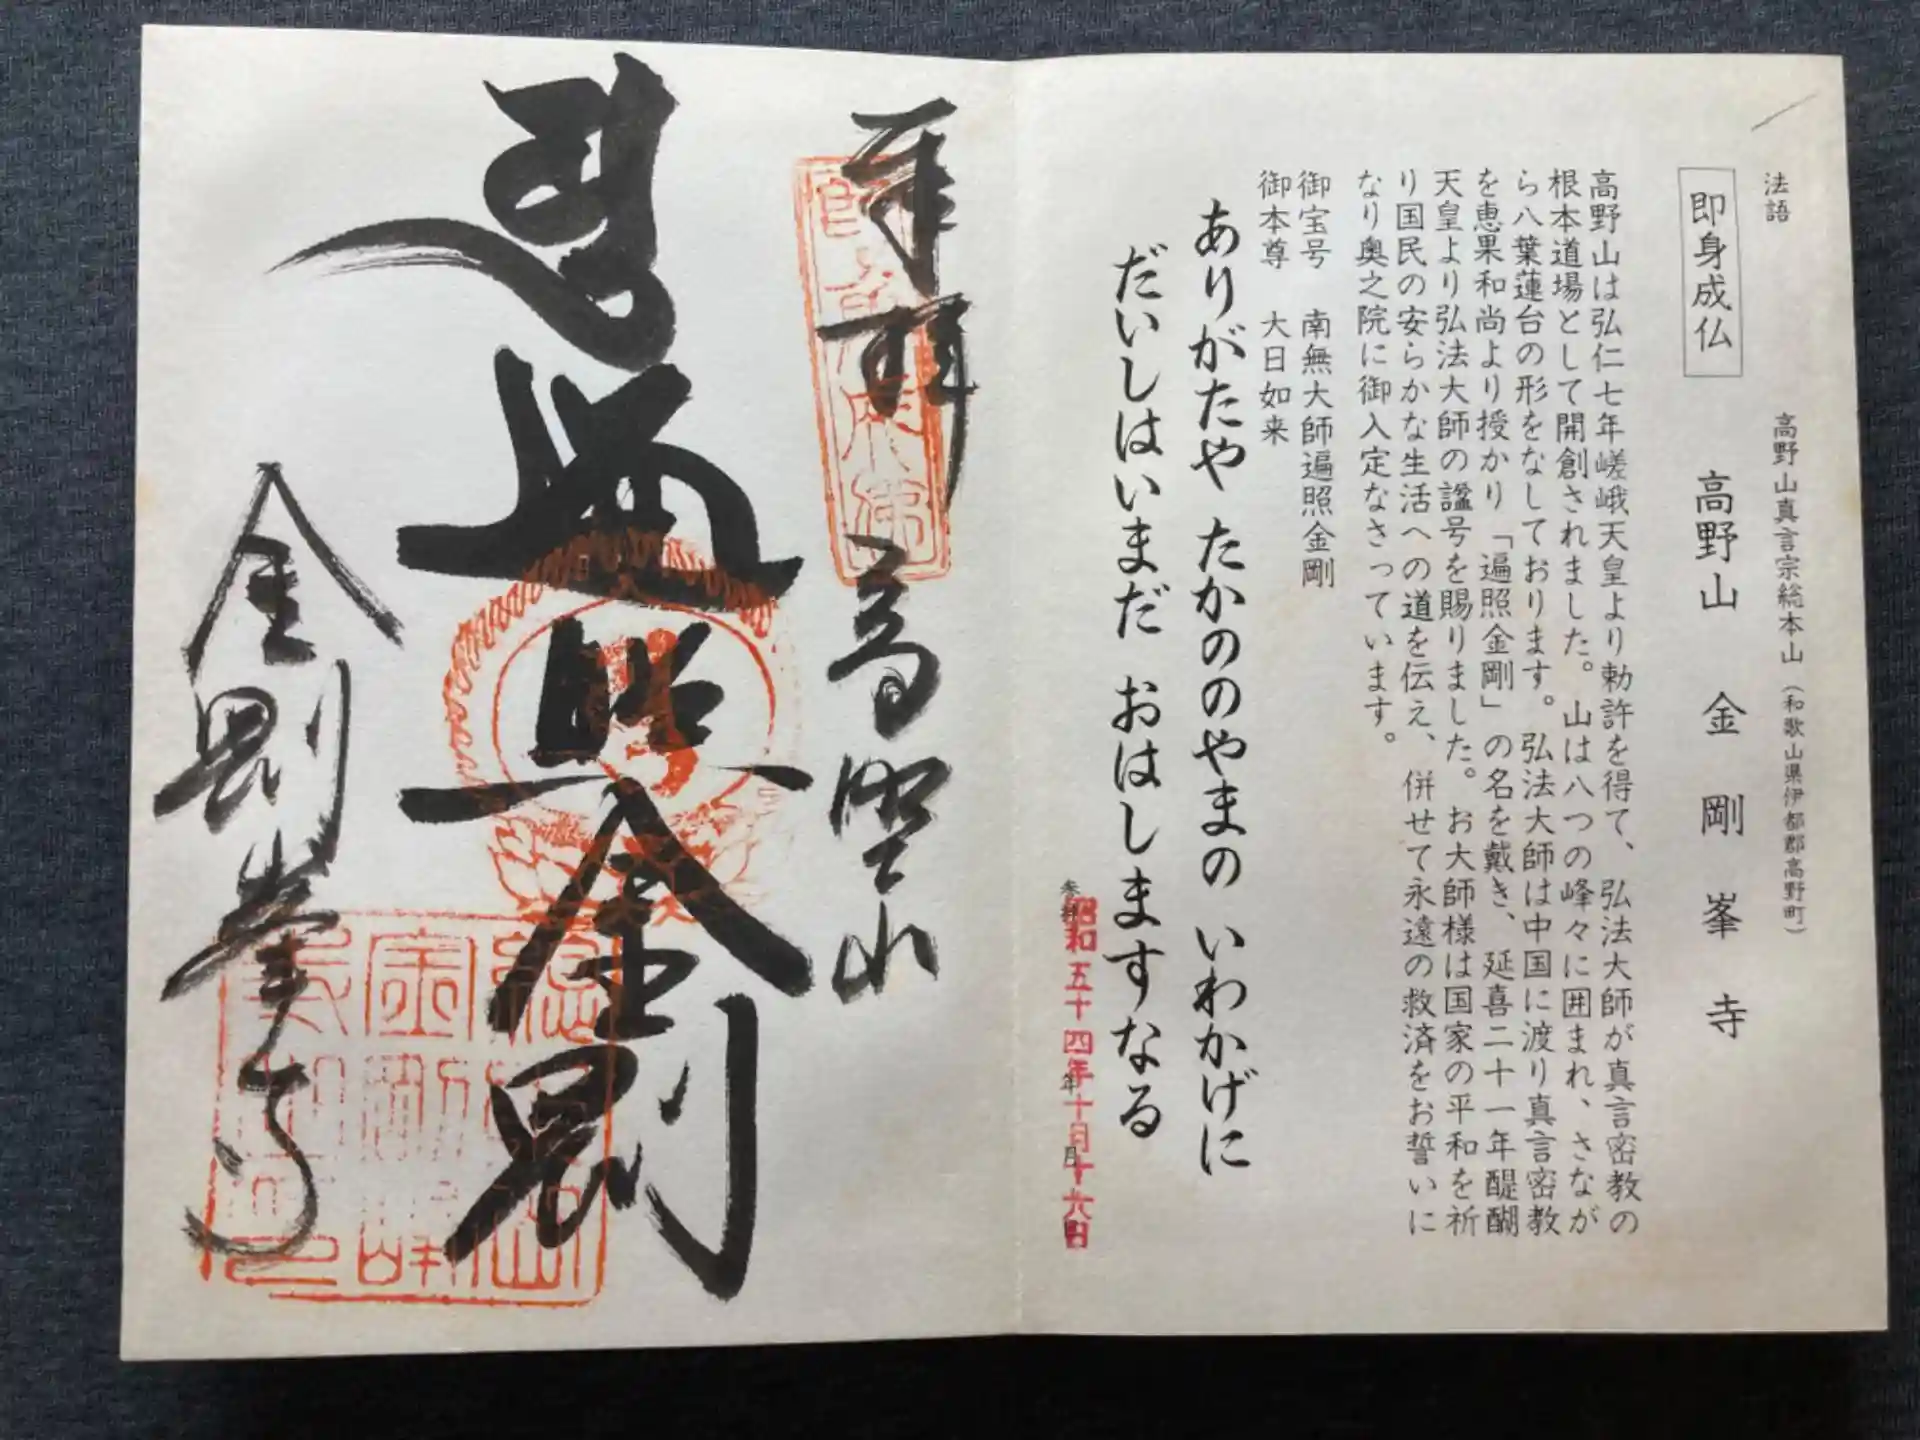 法語
高野山真言宗総本山(和歌山県伊都郡高野町)
即身成仏
高野山 金剛峯寺
高野山は弘仁七年嵯峨天皇より勅許を得て、弘法大師が真言密教の
根本道場として開創されました。山は八つの峰々に囲まれ、さなが
ら八葉蓮台の形をなしております。弘法大師は中国に渡り真言密教
を恵果和尚より授かり「遍照金剛」の名を戴き、延喜二十一年醍醐
天皇より弘法大師の諡号を賜りました。お大師様は国家の平和を祈
り国民の安らかな生活への道を伝え、併せて永遠の救済をお誓いに
なり奥之院に御入定なさっています。
御宝号 南無大師遍照金剛
御本尊 大日如来
ありがたや たかののやまの いわかげに
だいしはいまだ おはしますなる
昭和五十四年十月十六日
年 月
奉拝
高野山
遍照金剛
金剛峯寺